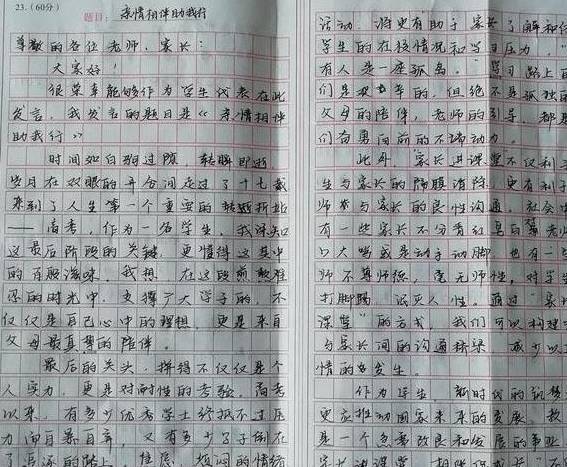 23.(60分)
题目: 亲情相伴助我行
尊敬的各位老师、家长:
大家好!
很荣幸能够作为学生代表在此
发言,我发言的题目是《亲情相伴
助我行》
时间如白驹过隙,转瞬即逝,
岁月在双眼的开合间走过了十七载
来到了人生第一个重要的转折站
——高考,作为一名学生,我深知
这最后阶段的关键,更懂得这其中
的百般滋味。我想,在这段煎熬难
忍的时光中,支撑广大学子的,不
仅仅是自己心中的理想,更是来自
父母最真挚的陪伴。
最后的关头,拼得不仅仅是个
人实力,更是对耐性的考验。高考
以来,有多少优秀学士经抵不过压
力而自暴自弃,又有多少学子倒在
了追逐的路上,焦虑、烦闷的情绪
活动,将更有助于家长了解和
学生的在校情况和学习压力。"
有人是一座孤岛。"学习路上
们是艰辛的,但绝不是孤独
父母的陪伴,老师的引导,都是
们奋勇向前的不竭动力。
此外,家长进课堂不仅利于
生与家长的隔膜消除,更有利于
师长与家长的良性沟通。社会
有一些家长不分青红皂白骂老师
口大骂或是动手动脚,也有一些
师不尊师德,毫无师性,对学生
打脚踢,泯灭人性。通过"家长
课堂"的方式,我们可以构建
与家长间的沟通桥梁,减少以
情的发生。
作为学生,新时代的
更应推动国家未来的发展,教
是一个急需改良和发展的事业
家长进课堂,相伴促成长"